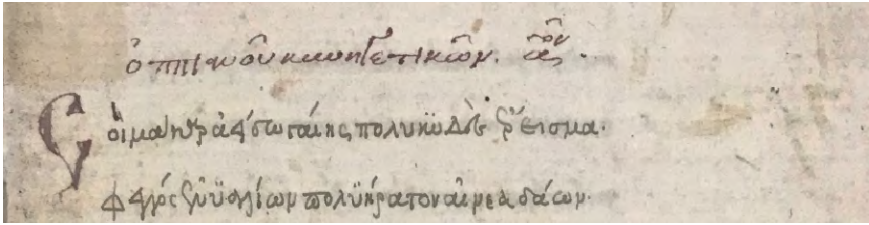 ὀππιανοῦ κυνηγετικῶν. αʹον.
Σοὶ μάκαρ ἀείδω γαίης πολυκϋδὲς ἔρεισμα.
φέγγος ἐνϋαλίων πολϋήρατον αἰνεαδάων.